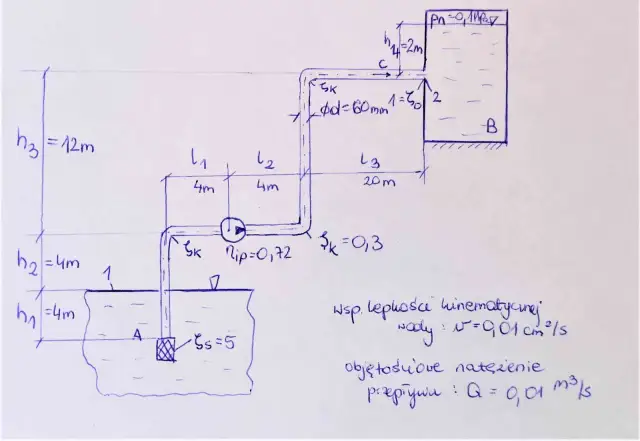 pn=0,1MPa
h4=2m
c
ζk
ϕd=60mm
1=ζo
2
B
h3=12m
l1
l2
l3
4m
4m
20m
ζk
ηip=0,72
ζk=0,3
h2=4m
1
h1=4m
A
ζs=5
wsp. lepkości kinematycznej
wody: υ=0,01 cm²/s
objętościowe natężenie
przepływu: Q = 0,01 m³/s